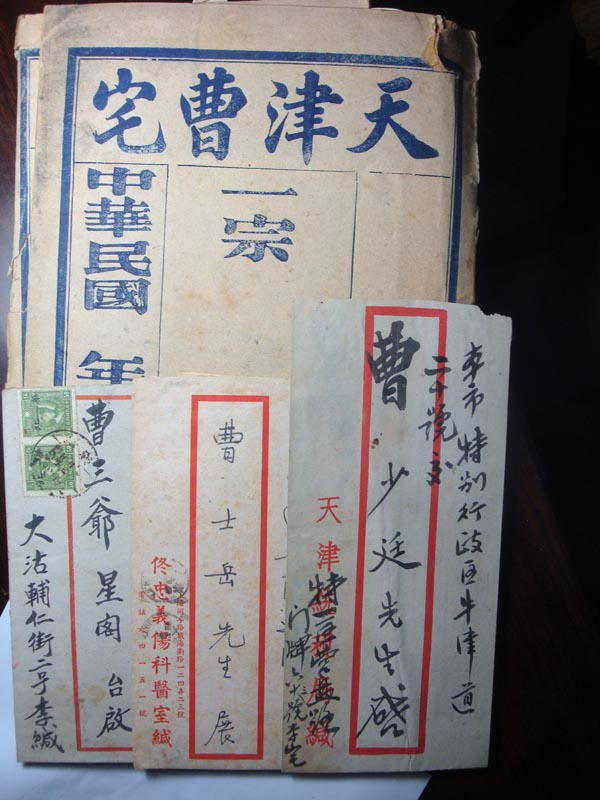 天津曹宅
一宗
中華民國 年
本市特别行政区牛津道
二十號交
曹少廷先生啓
天津
緘
门牌
號李宅
曹士岳先生展
佟忠義傷科醫室緘
曹三爺星閣台啟
大沽輔仁街二号李緘